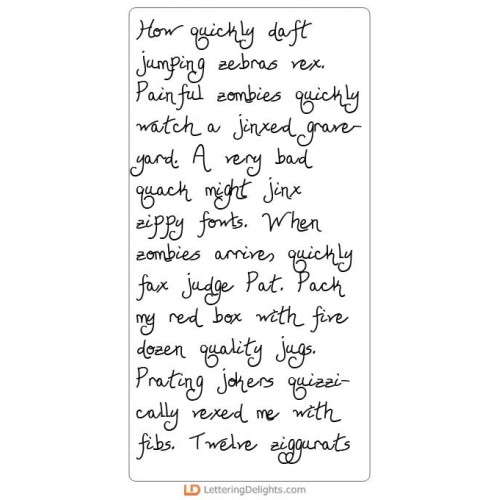 How quickly daft
jumping zebras vex.
Painful zombies quickly
watch a jinxed grave-
yard. A very bad
quack might jinx
zippy fowls. When
zombies arrive, quickly
fax judge Pat. Pack
my red box with five
dozen quality jugs.
Prating jokers quizzi-
cally vexed me with
fibs. Twelve ziggurats
LD LetteringDelights.com